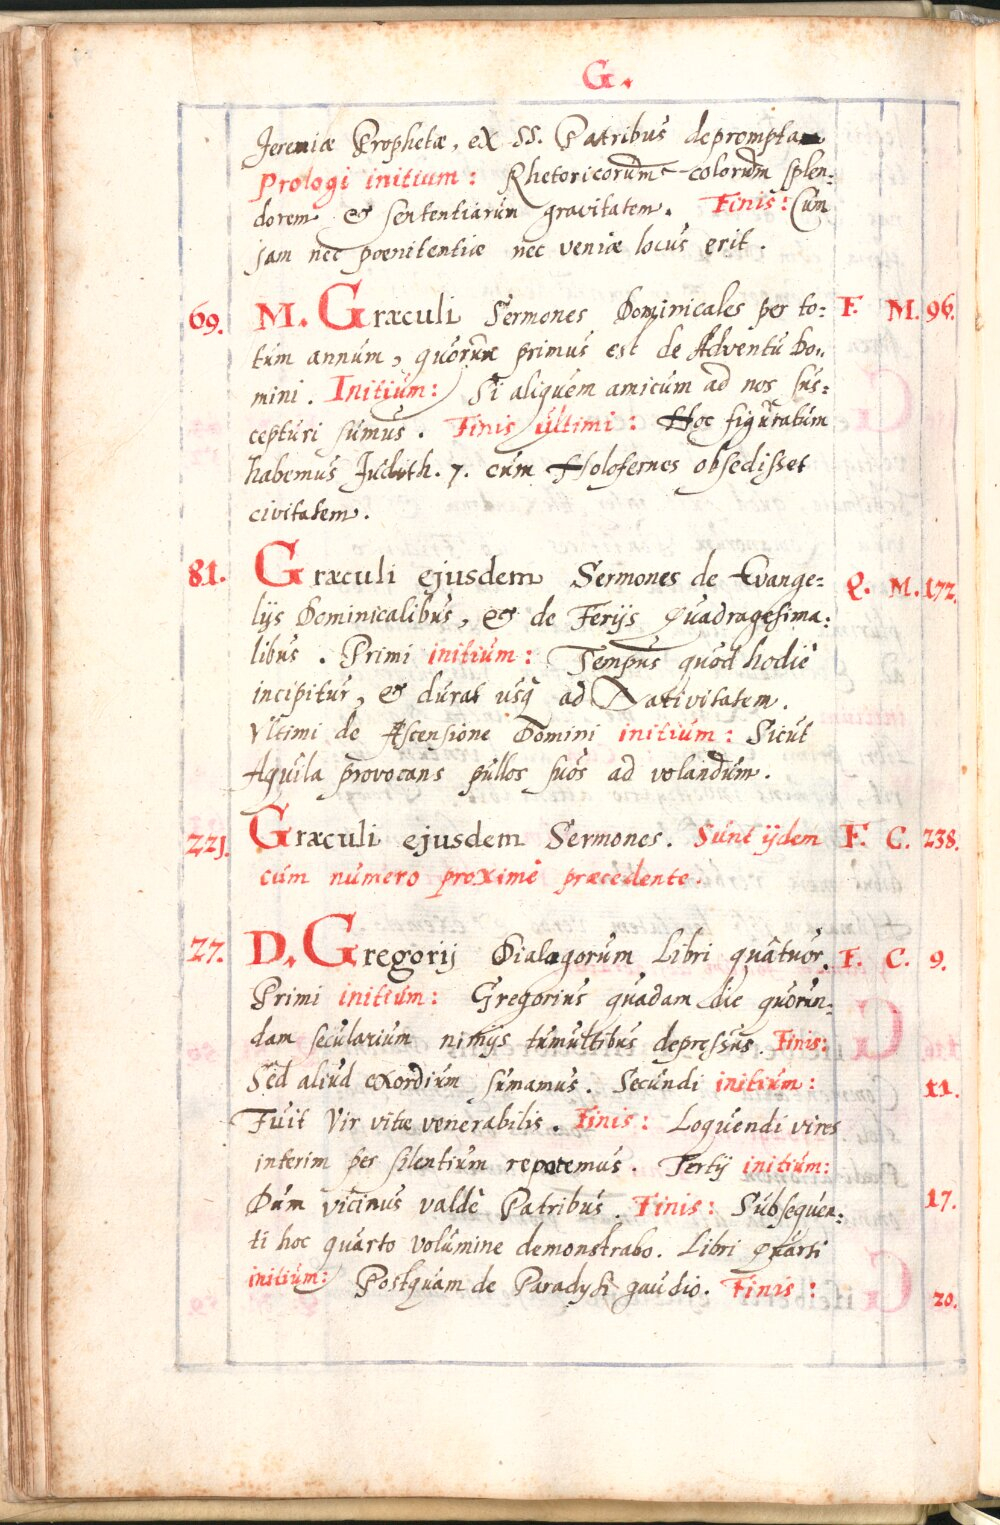 G.
Jeremiæ Prophetæ, ex SS. Patribus deprompta
Prologi initium: Rhetoricorum colorum splen:
dorem & sententiarum gravitatem. Finis: Cum
jam nec poenitentiæ nec veniæ locus erit.
69. M. Græculi Sermones Dominicales per to: F. M. 96.
tum annum, quorum primus est de Adventu Do:
mini. Initium: Si aliquem amicum ad nos sus:
cepturi sumus. Finis ultimi: Hoc figuratum
habemus Judith. 7. cum Holofernes obsedisset
civitatem.
81. Græculi ejusdem Sermones de Evange: Q. M. 172.
lijs Dominicalibus, & de Ferijs Quadragesima:
libus. Primi initium: Tempus quod hodiè
incipitur, & durat usq ad Nativitatem.
Vltimi de Ascensione Domini initium: Sicut
Aquila provocans pullos suos ad volandum.
221. Græculi ejusdem Sermones. Sunt ijdem F. C. 238.
cum numero proximè præcedente.
27. D. Gregorij Dialogorum Libri quàtuor. F. C. 9.
Primi initium: Gregorius quadam die quorun:
dam secularium nimijs tumultibus depressus. Finis:
Sed aliud exordium sumamus. Secundi initium: 11.
Fuit Vir vitæ venerabilis. Finis: Loquendi vires
interim per silentium reparemus. Tertij initium:
Dum vicinus valdè Patribus. Finis: Subsequen: 17.
ti hoc quarto volumine demonstrabo. Libri Quarti
initium: Postquam de Paradysi gaudio. Finis: 20.